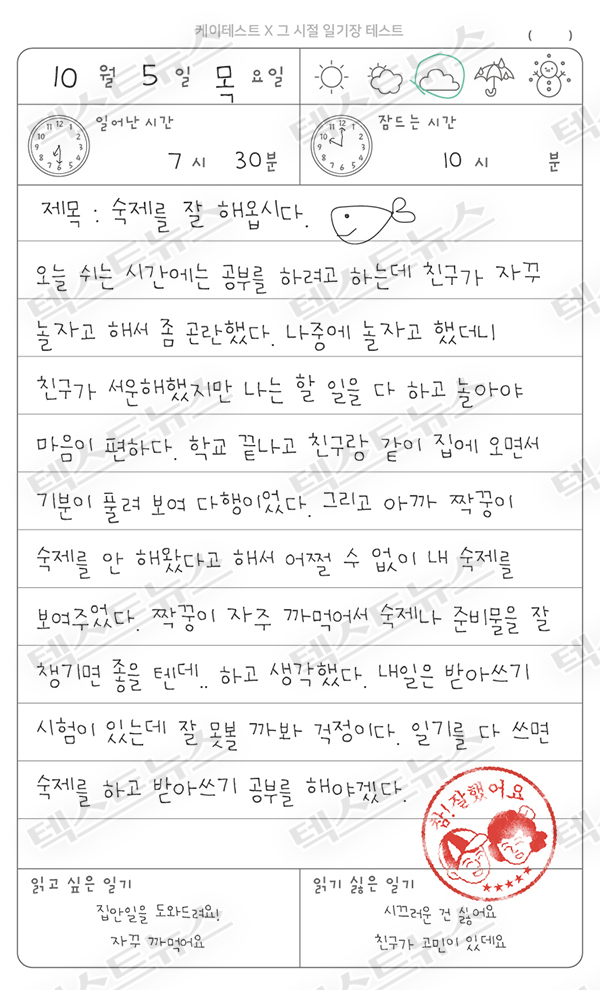 케이테스트 X 그 시절 일기장 테스트
( )
10 월 5 일 목 요일
일어난 시간
7 시 30분
잠드는 시간
10 시 분
제목 : 숙제를 잘 해옵시다.
오늘 쉬는 시간에는 공부를 하려고 하는데 친구가 자꾸
놀자고 해서 좀 곤란했다. 나중에 놀자고 했더니
친구가 서운해했지만 나는 할 일을 다 하고 놀아야
마음이 편하다. 학교 끝나고 친구랑 같이 집에 오면서
기분이 풀려 보여 다행이었다. 그리고 아까 짝꿍이
숙제를 안 해왔다고 해서 어쩔 수 없이 내 숙제를
보여주었다. 짝꿍이 자주 까먹어서 숙제나 준비물을 잘
챙기면 좋을 텐데.. 하고 생각했다. 내일은 받아쓰기
시험이 있는데 잘 못볼 까봐 걱정이다. 일기를 다 쓰면
숙제를 하고 받아쓰기 공부를 해야겠다.
참! 잘했어요
읽고 싶은 일기
집안일을 도와드려요!
자꾸 까먹어요
읽기 싫은 일기
시끄러운 건 싫어요
친구가 고민이 있데요
텍스트뉴스